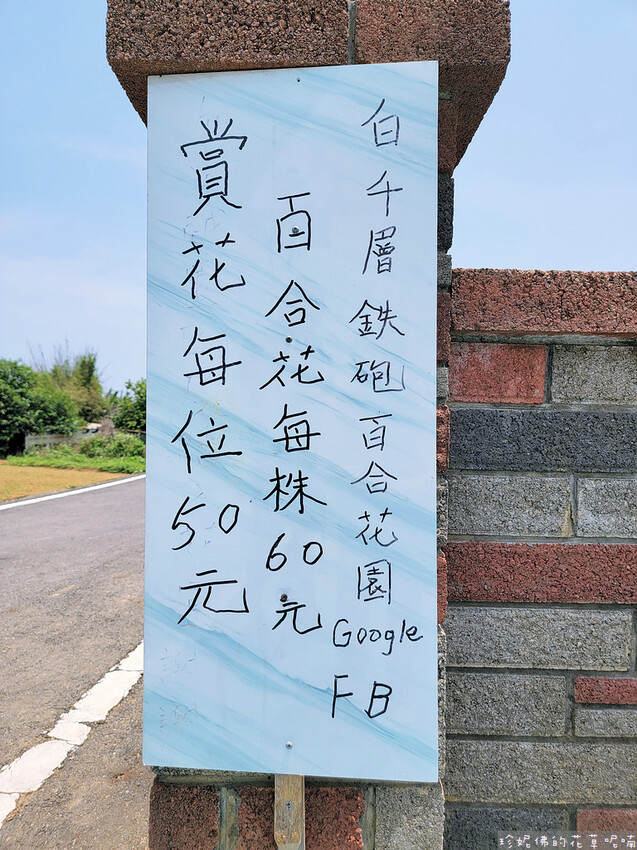 白千層鉄砲百合花園
Google
FB
百合花每株60元
賞花每位50元
珍妮佛的花草呢喃